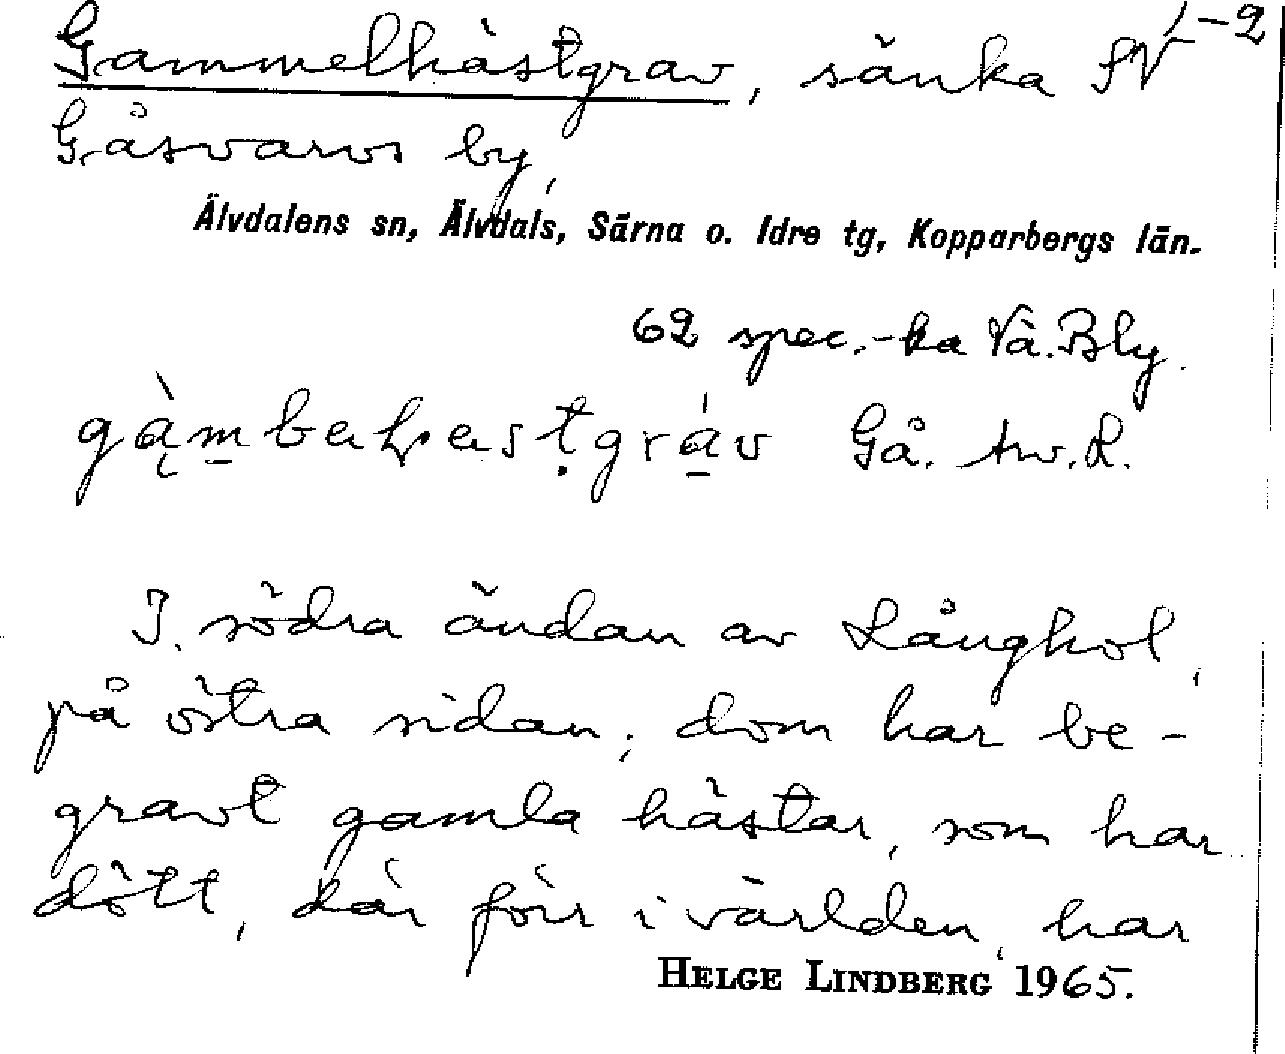 1-2
Gammelhästgrav, sänka SV
Gåsvarvs by,
Älvdalens sn, Älvdals, Särna o. Idre tg, Kopparbergs län.
62 spec.-ka Vå. Bly.
Gå.
I södra ändan av Långhol,
på östra sidan; dom har be-
gravt gamla hästar, som har
dött, där förr i världen, har
HELGE LINDBERG 1965.